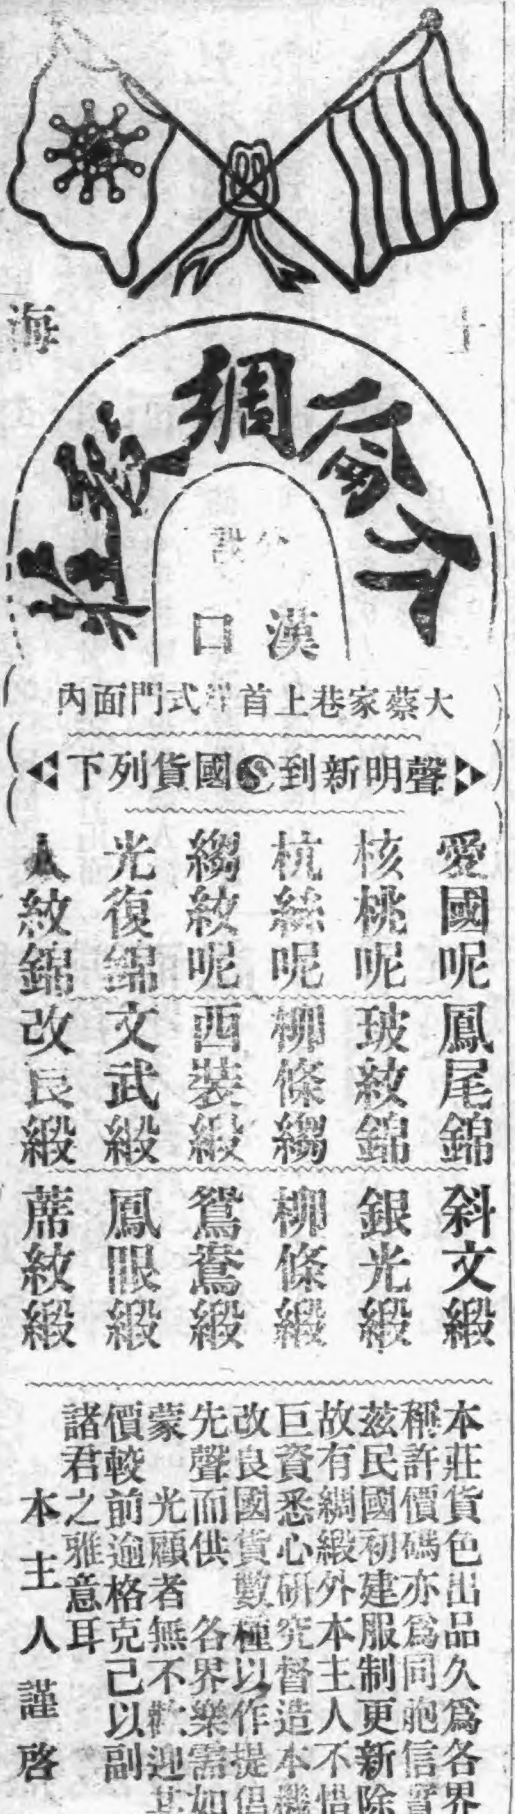 上海
介倫綢緞莊
公記
漢口
大蔡家巷上首洋式門面內
聲明新到國貨列下
愛國呢
核桃呢
杭絲呢
縐紋呢
光復錦
人紋錦
鳳尾錦
玻紋錦
柳條縐
西裝緞
文武緞
改良緞
斜文緞
銀光緞
柳條緞
鴛鴦緞
鳳眼緞
蓆紋緞
本莊貨色出品久爲各界
稱許價碼亦爲同胞信實
茲民國初建服制更新除
故有綢緞外本主人不惜
巨資悉心研究督造本機
改良國貨數種以作提倡
先聲而供 各界樂需如
蒙 光顧者無不歡迎其
價較前逾格克己以副
諸君之雅意耳
本主人謹啓